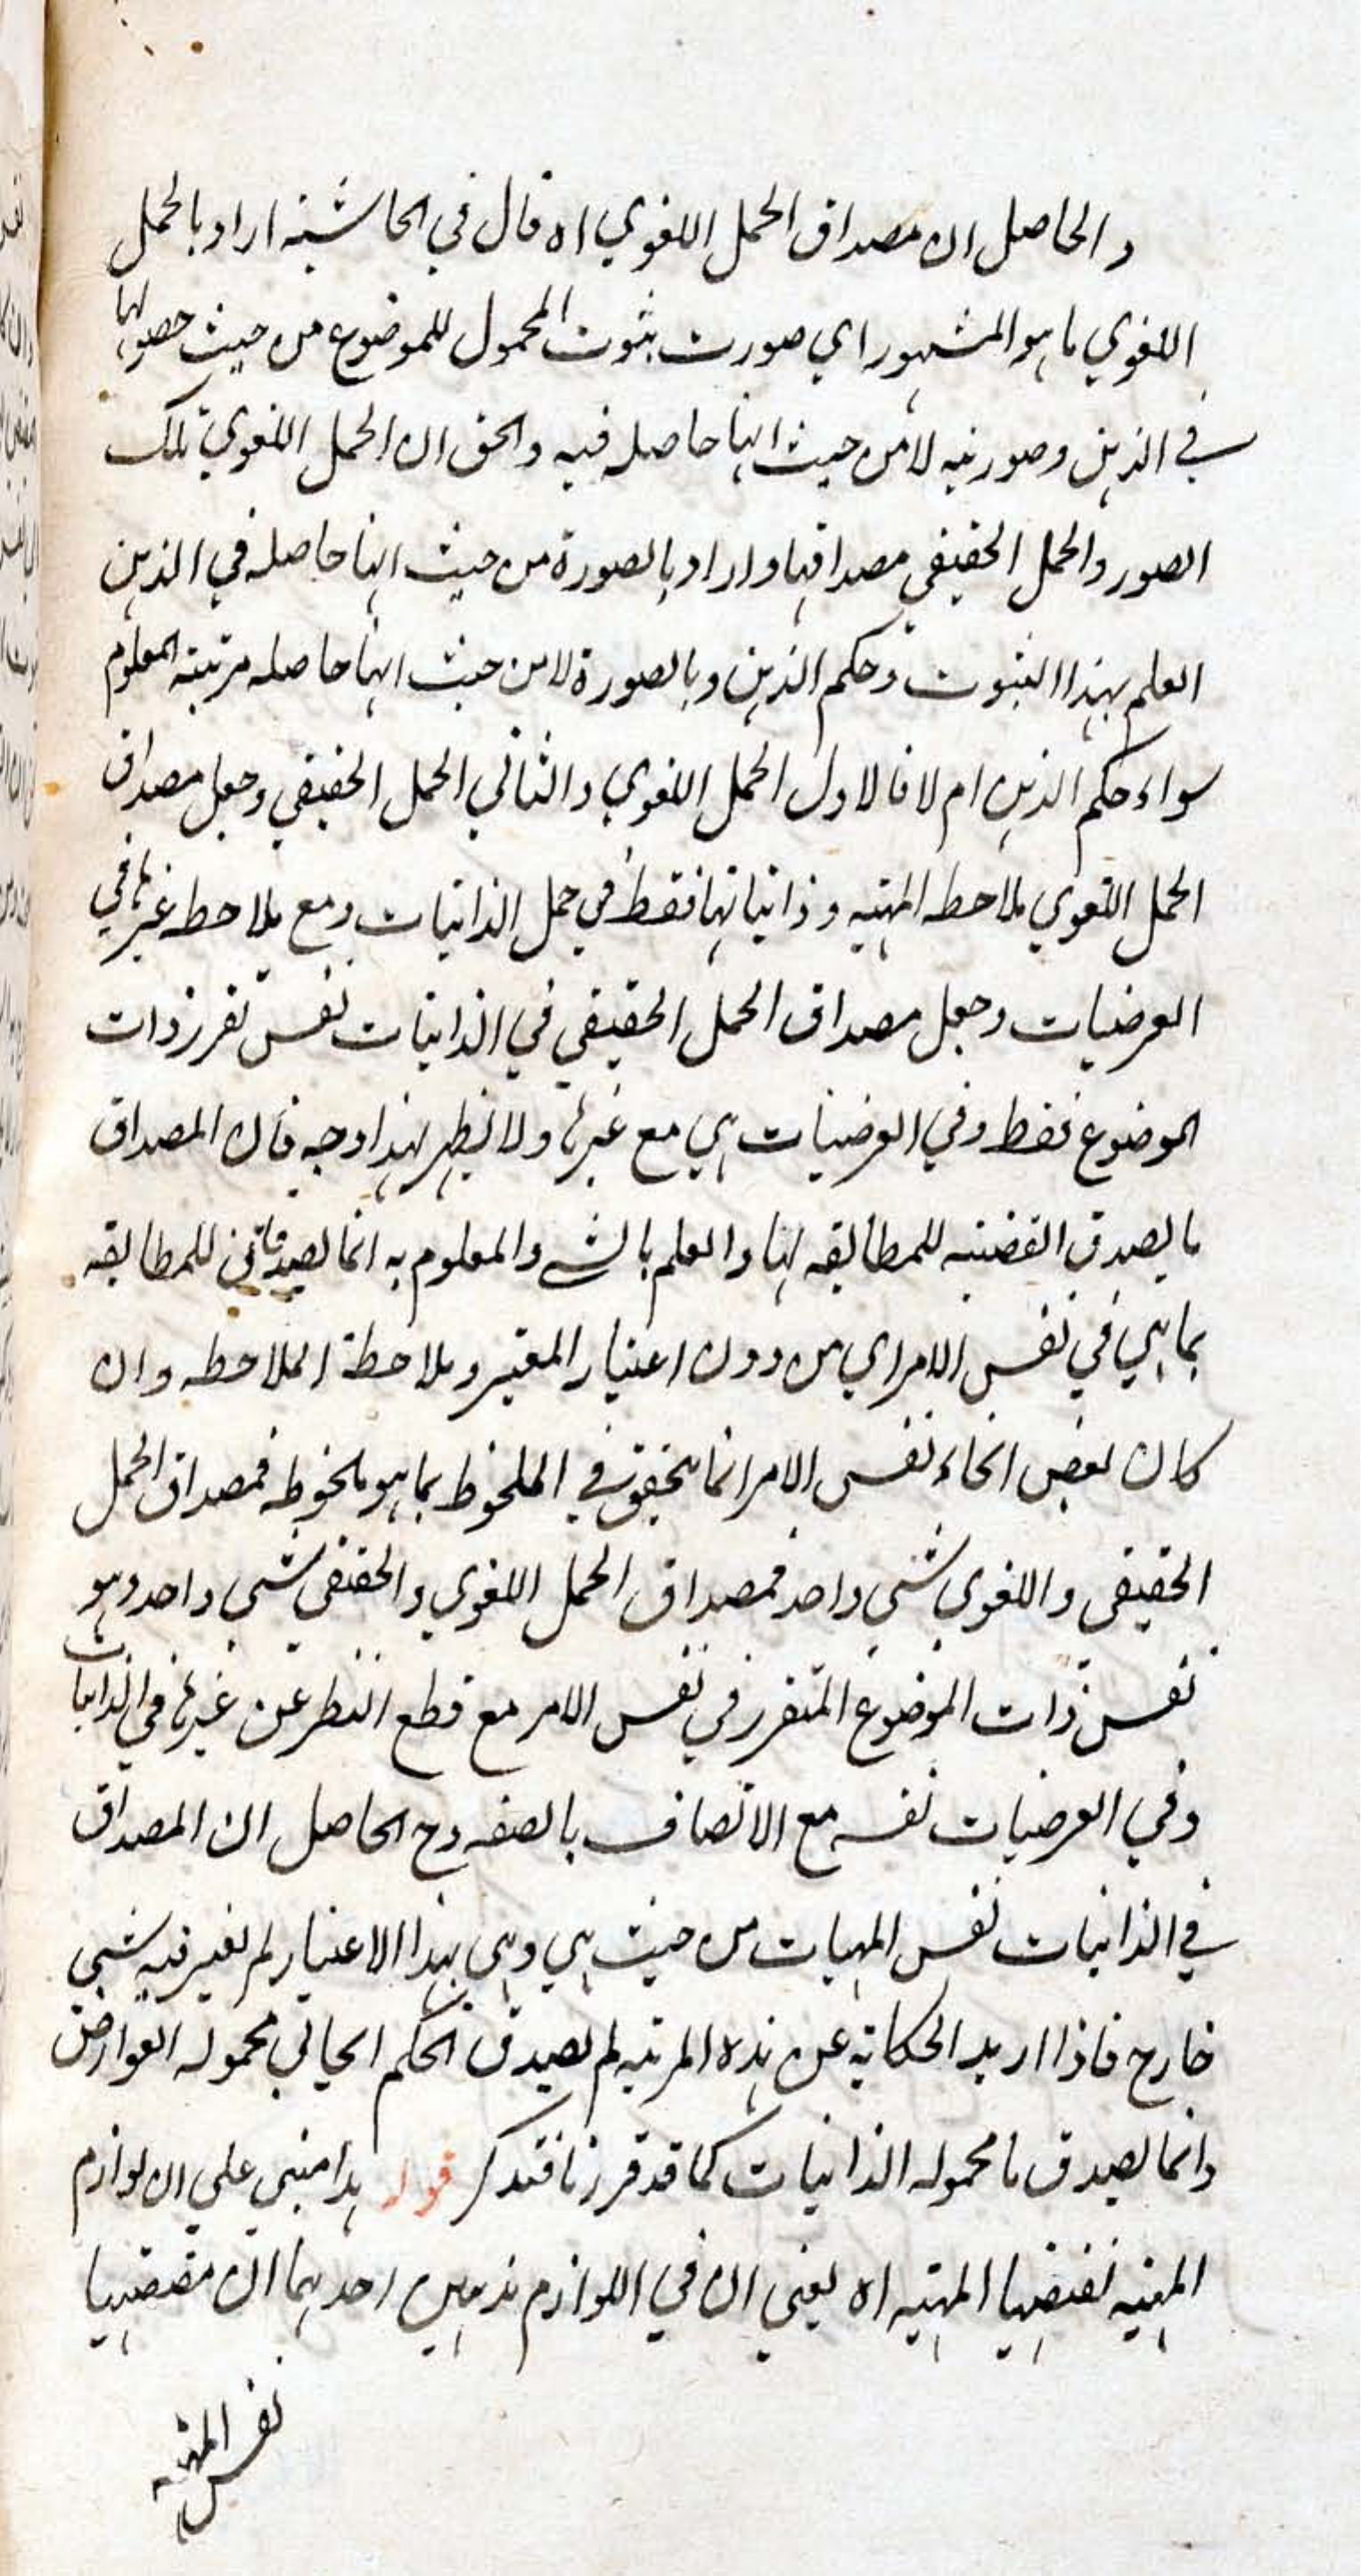 والحاصل ان مصداق الحمل اللغوي اه قال في الحاشيه اراد بالحمل
اللغوي ما هو المشهور اي صورت ثبوت المحمول للموضوع من حيث حصولها
في الذهن وصورته لا من حيث انها حاصله فيه والحق ان الحمل اللغوي تلك
الصور والحمل الحقيقي مصداقها واراد بالصورة من حيث انها حاصله في الذهن
العلم بهذا الثبوت وحكم الذهن وبالصورة لا من حيث انها حاصله مرتبته المعلوم
سواء حكم الذهن ام لا فالاول الحمل اللغوي والثاني الحمل الحقيقي وجعل مصداق
الحمل اللغوي ملاحظه المهيه وذاتياتها فقط في حمل الذاتيات ومع ملاحظه غيرها في
العرضيات وجعل مصداق الحمل الحقيقي في الذاتيات نفس تقرر ذات
الموضوع فقط وفي العرضيات هي مع غيرها ولا يظهر لهذا وجه فان المصداق
ما يصدق القضيه للمطابقه لها والعلم بالشے والمعلوم به انما يصدقان للمطابقه
بما هي في نفس الامر اي من دون اعتبار المعتبر وملاحظة الملاحظه وان
كان بعض انحاء نفس الامر انما يتحقق في الملحوظ بما هو ملحوظ فمصداق الحمل
الحقيقي واللغوي شي واحد فمصداق الحمل اللغوي والحقيقي شي واحد وهو
نفس ذات الموضوع المتقرر في نفس الامر مع قطع النظر عن غيرها في الذاتيات
وفي العرضيات نفسه مع الاتصاف بالصفه وح الحاصل ان المصداق
في الذاتيات نفس المهيات من حيث هي وهي بهذا الاعتبار لم يعتبر فيه شي
خارج فاذا اريد الحكاية عن هذه المرتبه لم يصدق الحكم الايجابي محموله العوارض
وانما يصدق ما محموله الذاتيات كما قد قررنا فتذكر قوله هذا مبني علي ان لوازم
المهيه تقتضيها المهيه اه يعني ان في اللوازم مذهبين احدهما ان مقتضيها
نفس المهيه